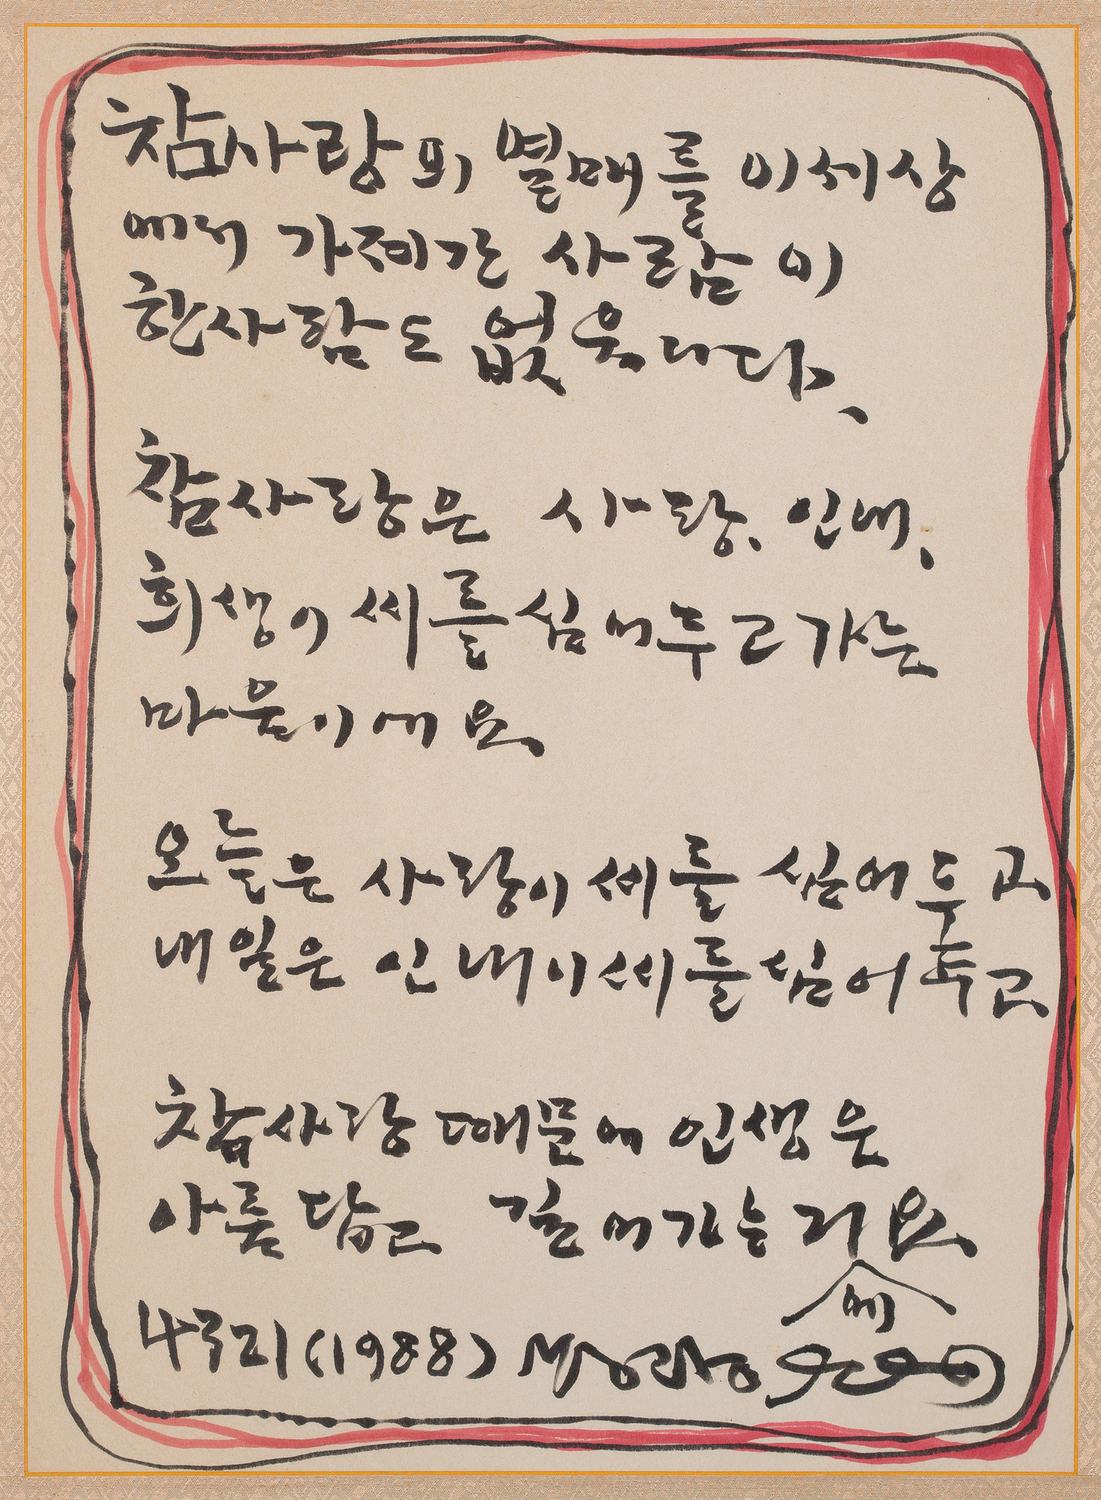 참사랑의 열매를 이세상
에서 가져간 사람이
한사람도 없읍니다.
참사랑은 사랑, 인내,
희생이 씨를 심어두고 가는
마음이에요
오늘은 사랑이 씨를 심어두고
내일은 인내이 씨를 심어두고
참사랑 때문에 인생은
아름답고 깊어가는 거요
에
(1988)